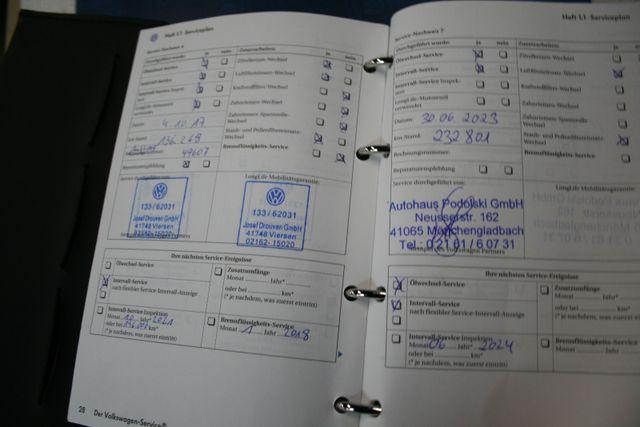 Heft 1.1 Serviceplan
Service-Nachweis 6
Durchgeführt wurde: ja nein
Ölwechsel-Service
Intervall-Service
Intervall-Service Inspektion
LongLife-Motorenöl verwendet
Datum: 4.10.17
km-Stand: 136.269
49607
Reparaturempfehlung
Service durchgeführt von:
133/62031
Josef Drouven GmbH
41748 Viersen
02162-15020
Zusatzarbeiten: ja nein
Zündkerzen-Wechsel
Luftfiltereinsatz-Wechsel
Kraftstofffilter-Wechsel
Zahnriemen-Wechsel
Zahnriemen-Spannrolle-
Wechsel
Staub- und Pollenfiltereinsatz-
Wechsel
Bremsflüssigkeits-Wechsel
LongLife Mobilitätsgarantie:
133/62031
Josef Drouven GmbH
41748 Viersen
02162-15020
Ihre nächsten Service-Ereignisse
Ölwechsel-Service
Intervall-Service
nach flexibler Service-Intervall-Anzeige
Intervall-Service Inspektion
Monat 10 Jahr* 2021
oder bei km*
(* je nachdem, was zuerst eintritt)
Zusatzumfänge
Monat Jahr*
oder bei km*
(* je nachdem, was zuerst eintritt)
Bremsflüssigkeits-Service
Monat 1 Jahr 2018
28 Der Volkswagen-Service
Heft 1.1 Serviceplan
Service-Nachweis 7
Durchgeführt wurde: ja nein
Ölwechsel-Service
Intervall-Service
Intervall-Service Inspek-
tion
LongLife-Motorenöl
verwendet
Datum: 30 06 2023
km-Stand: 232 801
Rechnungsnummer:
Reparaturempfehlung
Service durchgeführt von:
Autohaus Podolski GmbH
Neusserstr. 162
41065 Mönchengladbach
Tel.: 0 21 61 / 6 07 31
Stempel des Volkswagen Partners
Zusatzarbeiten:
Zündkerzen-Wechsel
Luftfiltereinsatz-Wechsel
Kraftstofffilter-Wechsel
Zahnriemen-Wechsel
Zahnriemen-Spannrolle-
Wechsel
Staub- und Pollenfiltereinsatz-
Wechsel
Bremsflüssigkeits-Wechsel
Ihre nächsten Service-Ereignisse
Ölwechsel-Service
Intervall-Service
nach flexibler Service-Intervall-Anzeige
Intervall-Service Inspektion
Monat 06 Jahr* 2024
oder bei km*
(* je nachdem, was zuerst eintritt)
Zusatzumfänge
Monat
oder bei
(* je nachdem, was
Bremsflüssigkeits-Service
Monat Jahr